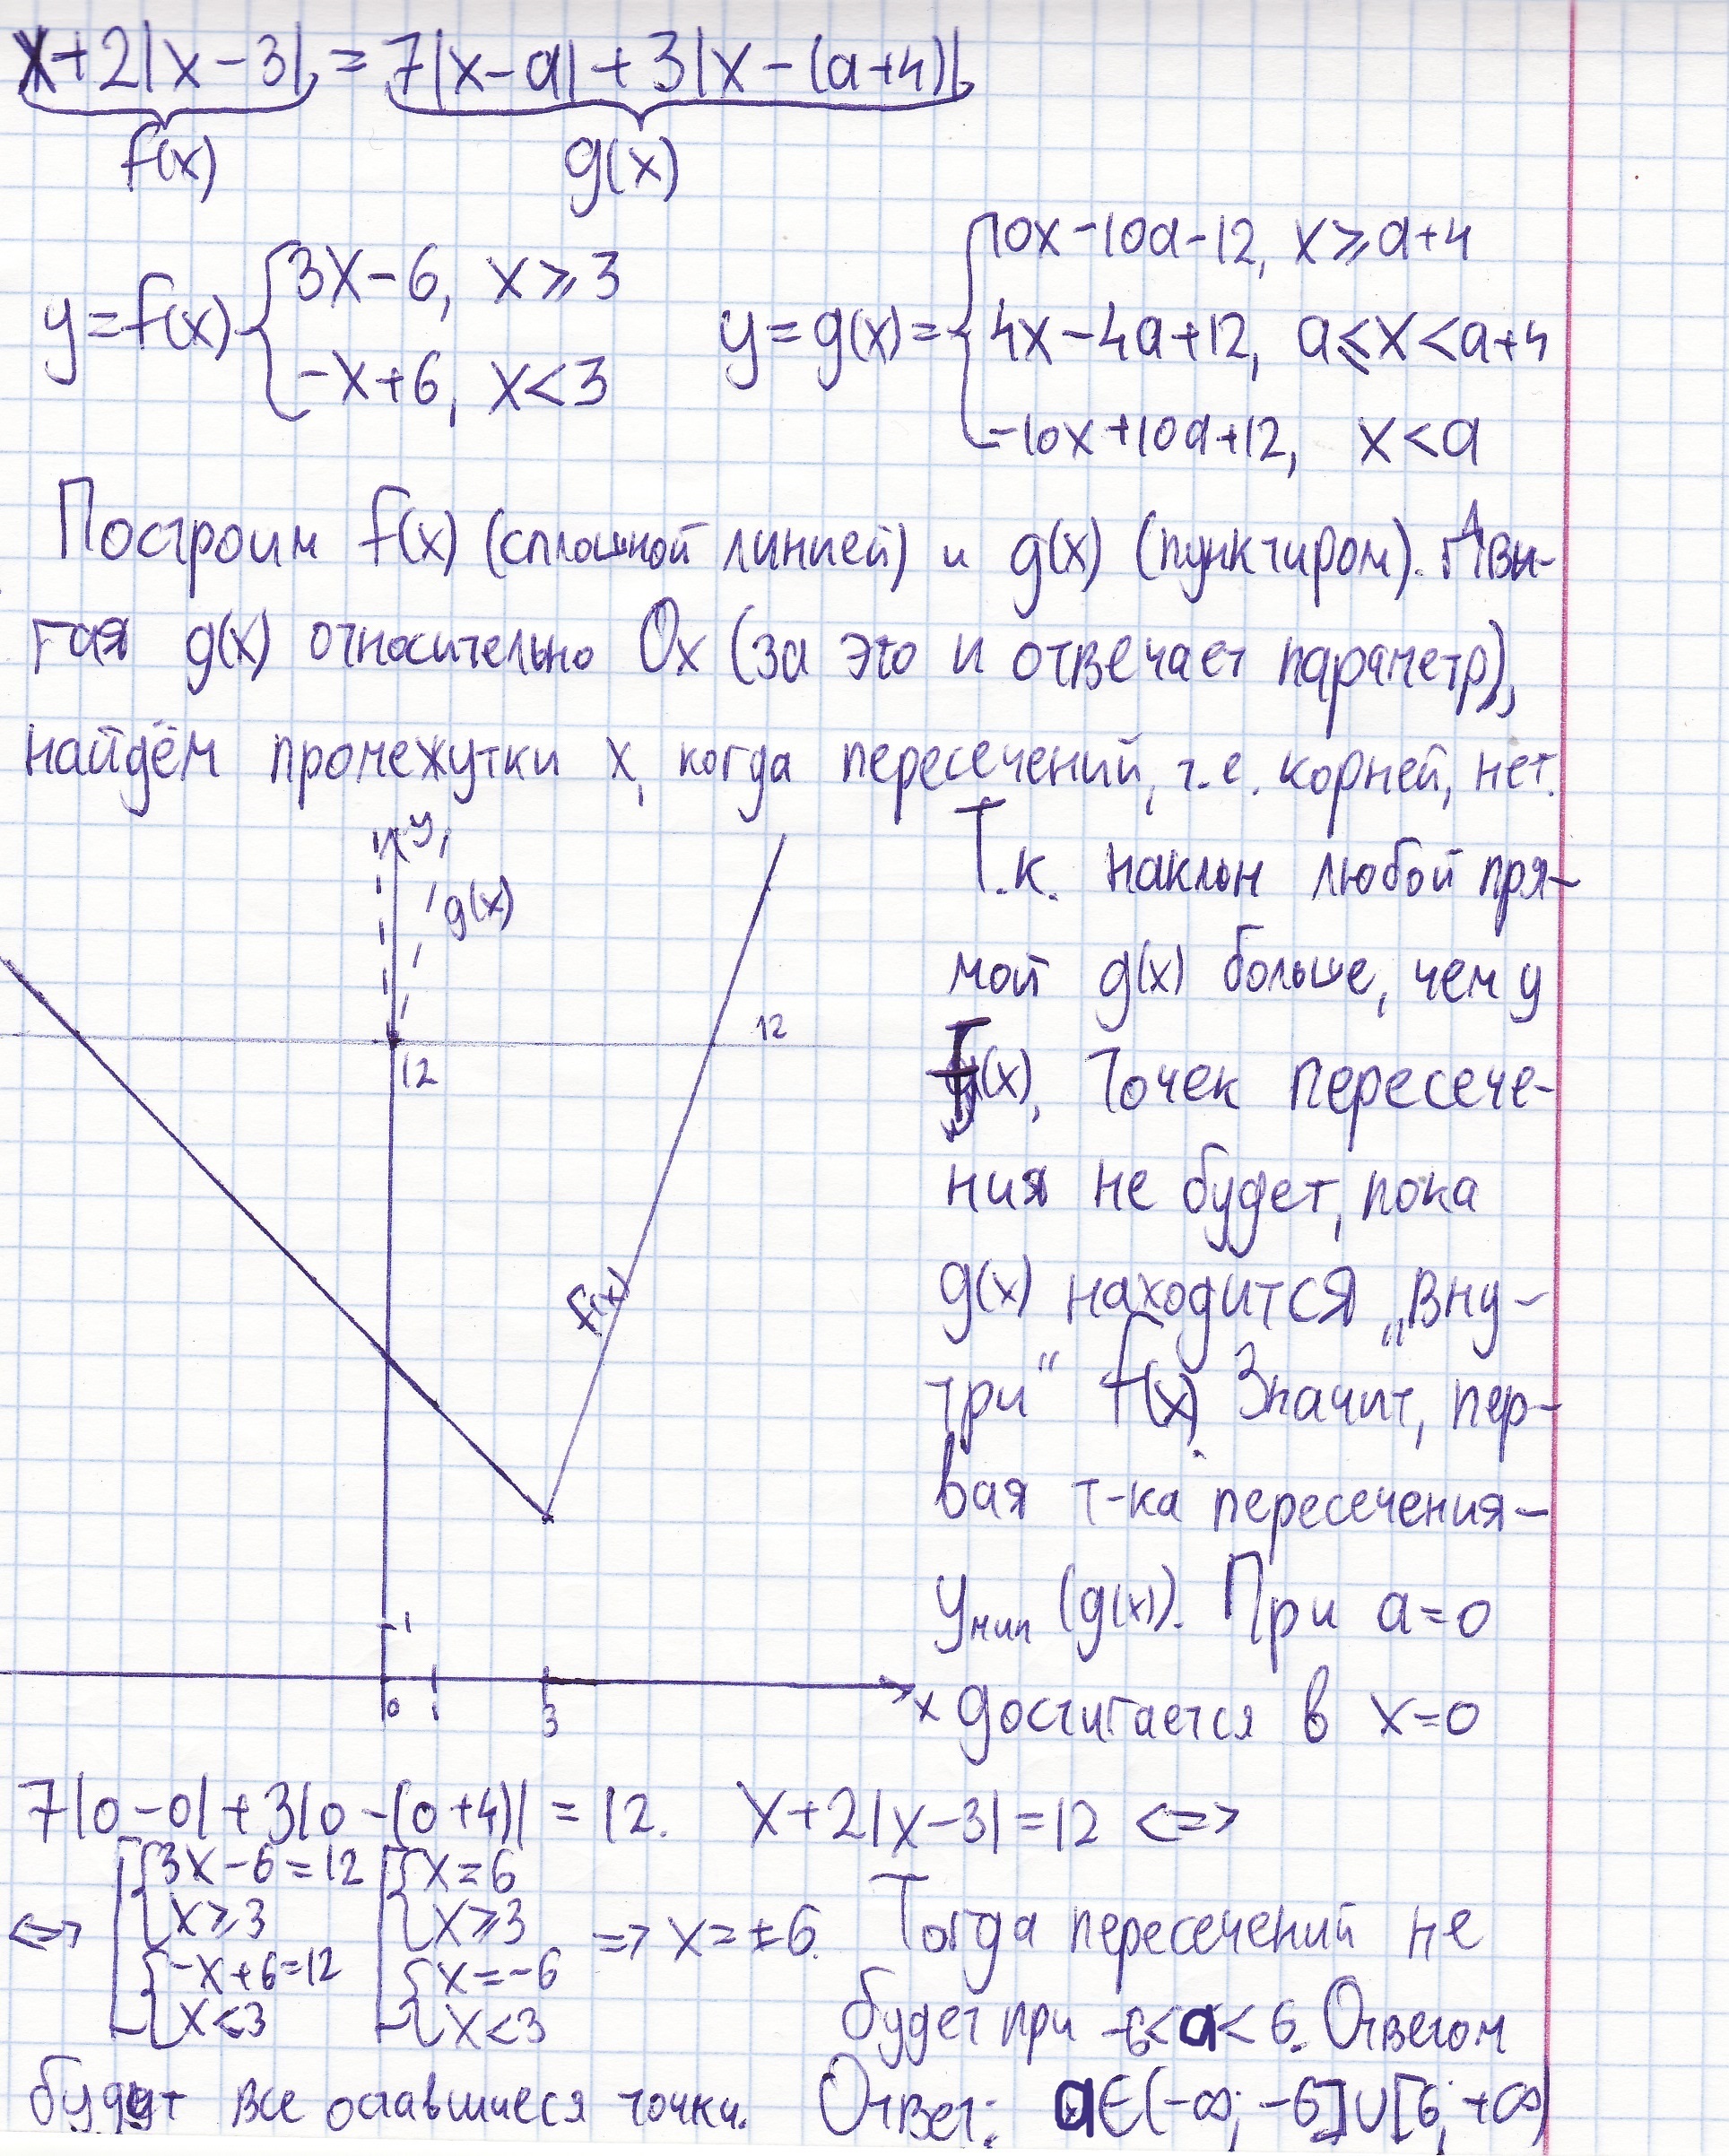 x+2|x-3| = 7|x-a|+3|x-(a+4)|
f(x) g(x)
y=f(x) { 3x-6, x≥3
-x+6, x<3
y=g(x)= { 10x-10a-12, x≥a+4
4x-4a+12, a≤x<a+4
-10x+10a+12, x<a
Построим f(x) (сплошной линией) и g(x) (пунктиром). Дви-
гая g(x) относительно Ox (за это и отвечает параметр),
найдём промежутки x, когда пересечений, т.е. корней, нет.
y
g(x)
12
12
f(x)
1
0 1 3 x
Т.к. наклон любой пря-
мой g(x) больше, чем у
f(x), точек пересече-
ния не будет, пока
g(x) находится „вну-
три“ f(x). Значит, пер-
вая т-ка пересечения-
yмин (g(x)). При a=0
достигается в x=0
7|0-0|+3|0-(0+4)| = 12. x+2|x-3|=12 <=>
<=> [ { 3x-6=12 [ { x=6
x≥3 x≥3
{ -x+6=12 { x=-6
x<3 x<3
=> x=±6. Тогда пересечений не
будет при -6<a<6. Ответом
будут все оставшиеся точки. Ответ: a∈(-∞; -6]∪[6; +∞)